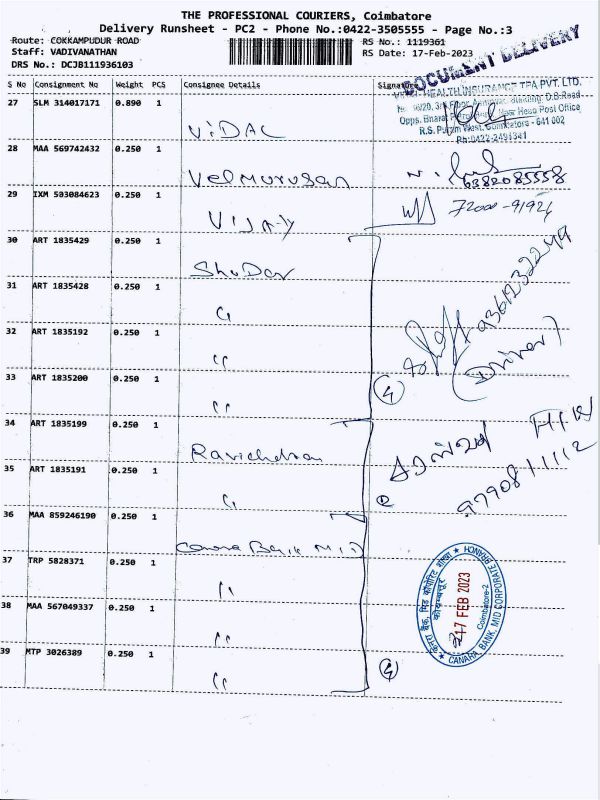 THE PROFESSIONAL COURIERS, Coimbatore
Delivery Runsheet - PC2 - Phone No.:0422-3505555 - Page No.:3
Route: COKKAMPUDUR ROAD
RS No.: 1119361
Staff: VADIVANATHAN
RS Date: 17-Feb-2023
DRS No.: DCJB111936103
DOCUMENT DELIVERY
S No Consignment No Weight PCS Consignee Details Signature
HEALTH INSURANCE TPA PVT. LTD.
R.S. Puram West, Coimbatore - 641 002
Ph:0422-2491341
27 SLM 314017171 0.890 1 ViDAL
28 MAA 569742432 0.250 1 Velmurugan
6382085558
29 IXM 503084623 0.250 1 VIJAY
30 ART 1835429 0.250 1 ShuDar
9361232249
(Driver)
31 ART 1835428 0.250 1 "
32 ART 1835192 0.250 1 "
33 ART 1835200 0.250 1 "
34 ART 1835199 0.250 1
9790811112
35 ART 1835191 0.250 1 "
36 MAA 859246190 0.250 1 Canara Bank
37 TRP 5828371 0.250 1 "
38 MAA 567049337 0.250 1 "
39 MTP 3026389 0.250 1 "
17 FEB 2023
Coimbatore-2
CANARA BANK, MID CORPORATE BRANCH